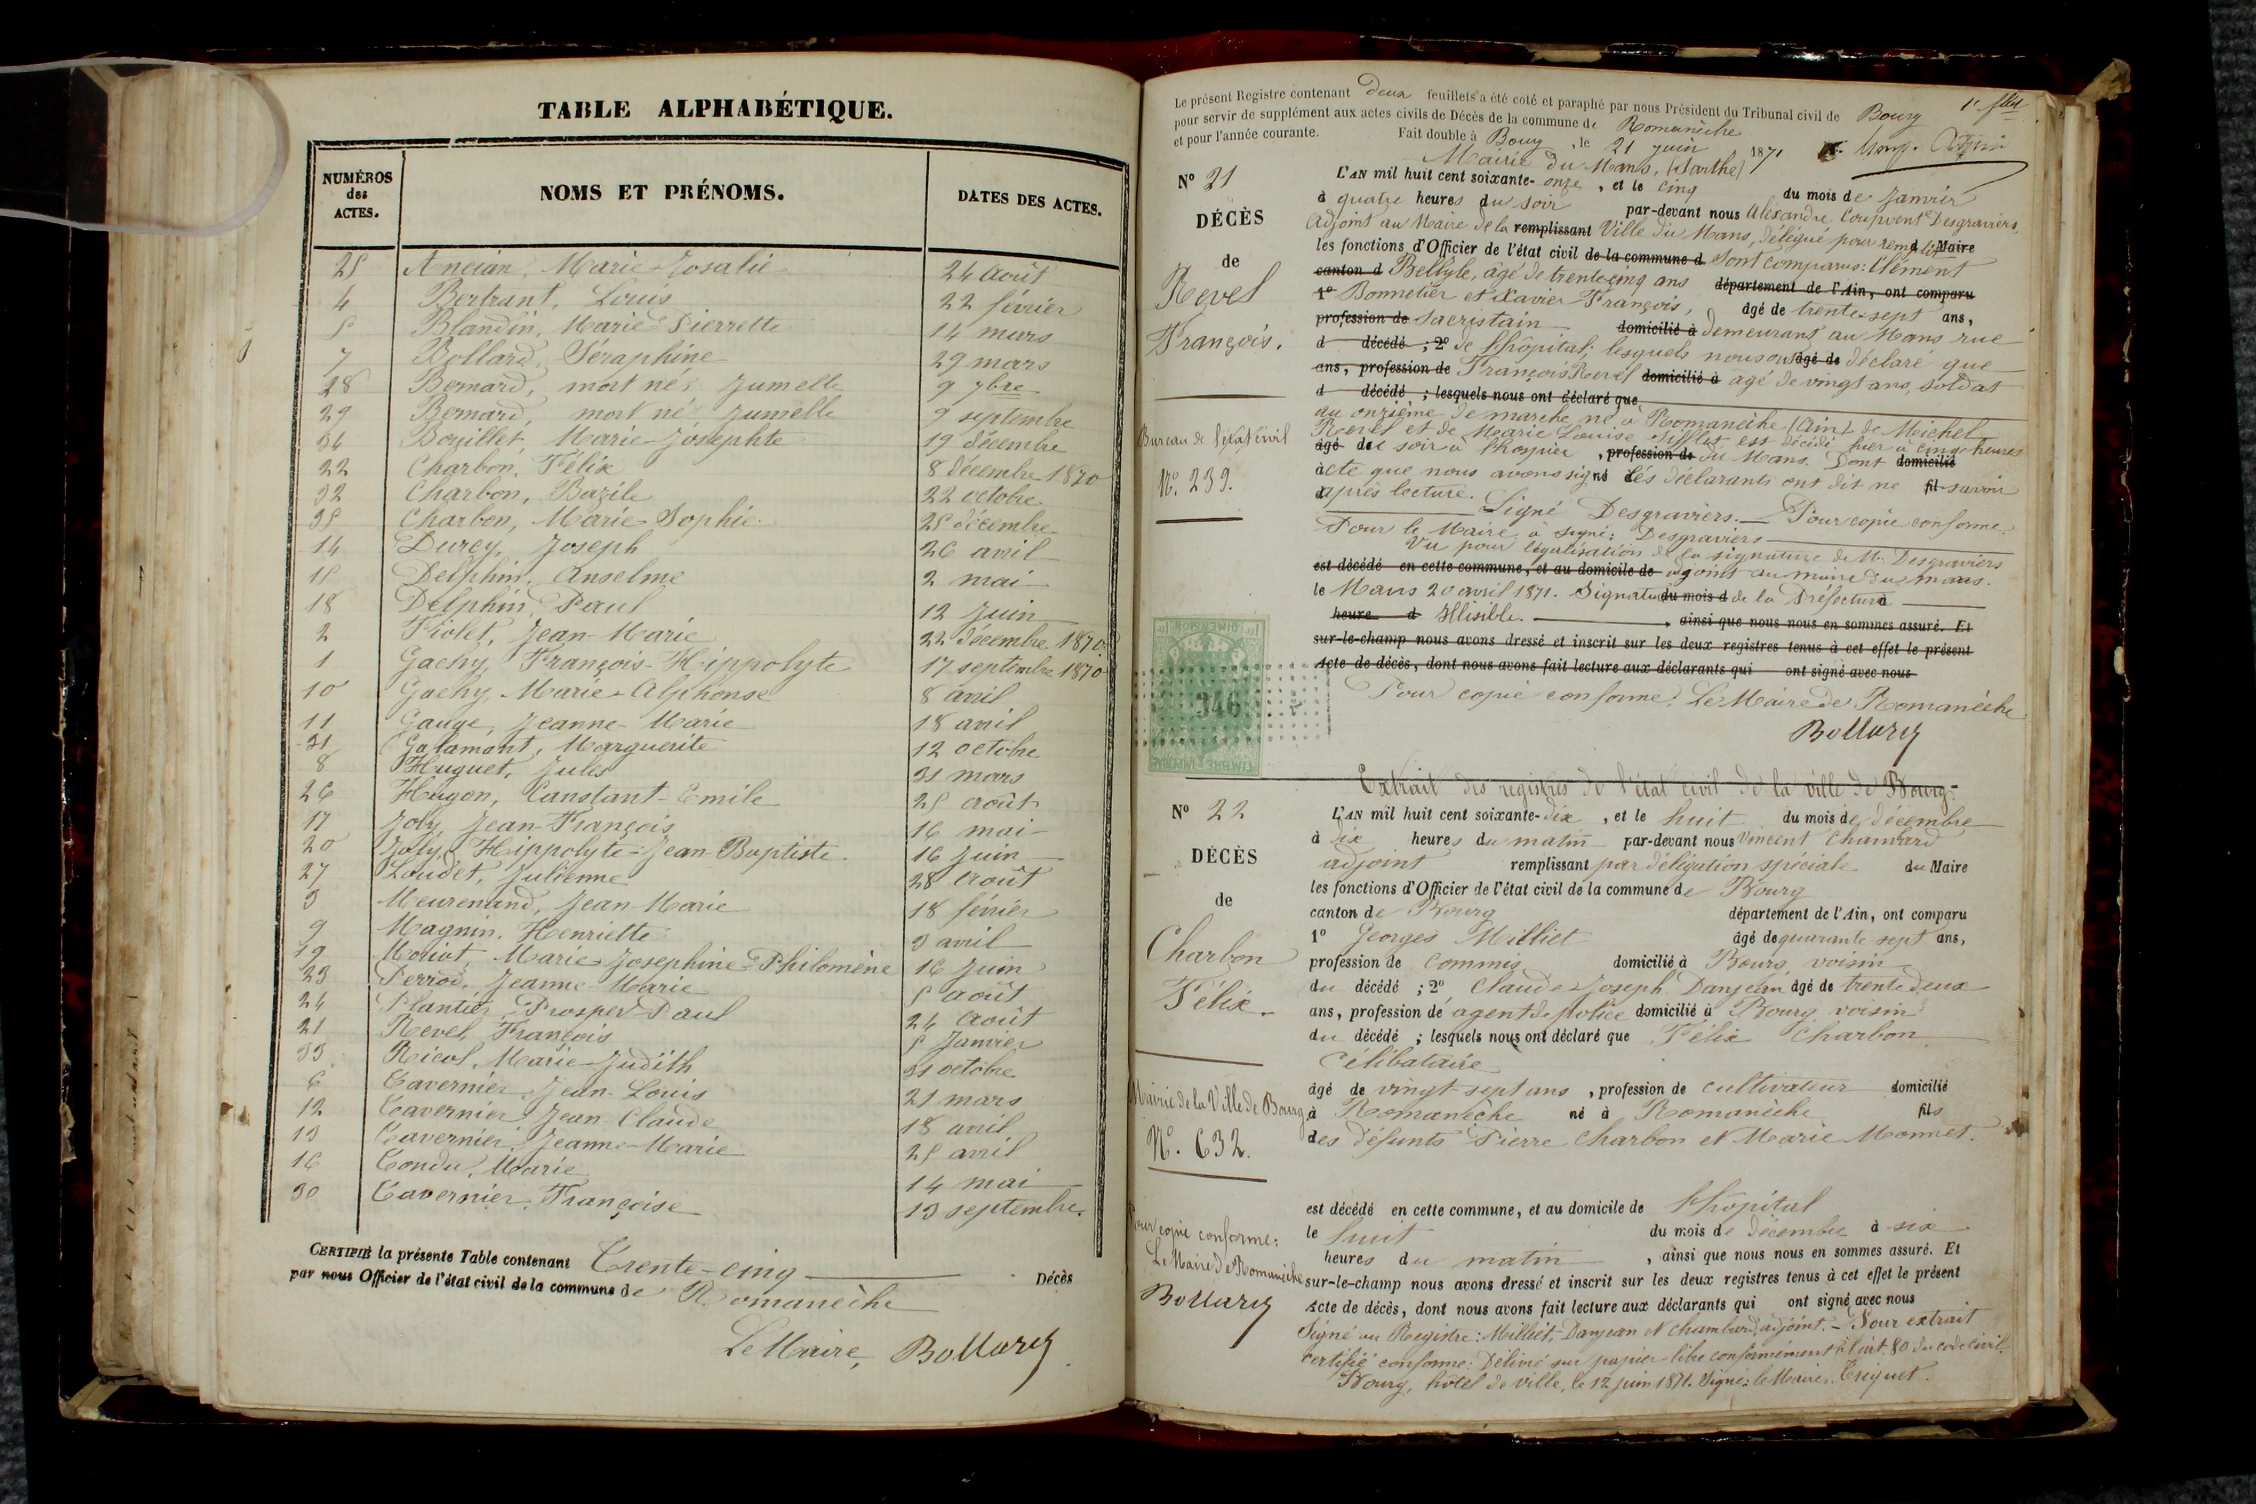 TABLE ALPHABÉTIQUE.
NUMÉROS des ACTES. NOMS ET PRÉNOMS. DATES DES ACTES.
25 Ancian, Marie-Rosalie 24 août
4 Bertrant, Louis 22 février
5 Blandin, Marie-Pierrette 14 mars
7 Bollard, Séraphine 29 mars
28 Bernard, mort né, Jumelle 9 7bre
29 Bernard, mort né Jumelle 9 septembre
34 Bouillet, Marie-Josephte 19 décembre
22 Charbon, Félix 8 décembre 1870
32 Charbon, Bazile 22 octobre
35 Charbon, Marie-Sophie 25 décembre
14 Durey, Joseph 26 avril
15 Delphin, Anselme 2 mai
18 Delphin, Paul 12 juin
2 Fiolet, Jean-Marie 22 décembre 1870
1 Gachy, François-Hippolyte 17 septembre 1870
10 Gachy, Marie-Alphonse 8 avril
11 Gauge, Jeanne-Marie 18 avril
31 Galamant, Marguerite 12 octobre
8 Huguet, Jules 31 mars
26 Hugon, Constant-Emile 25 août
17 Joly, Jean-François 16 mai
20 Joly, Hippolyte-Jean-Baptiste 16 juin
27 Loudet, Julienne 28 août
3 Meurenand, Jean-Marie 18 février
9 Magnin, Henriette 3 avril
19 Moriat, Marie-Josephine-Philomène 16 juin
23 Perrod, Jeanne-Marie 5 août
24 Plantier, Prosper-Paul 24 août
21 Revel, François 5 janvier
33 Ricol, Marie-Judith 31 octobre
6 Tavernier, Jean-Louis 21 mars
12 Tavernier Jean-Claude 18 avril
13 Tavernier, Jeanne-Marie 25 avril
16 Tondu, Marie 14 mai
30 Tavernier, Françoise 13 septembre.
CERTIFIÉ la présente Table contenant Trente-cinq Décès
par nous Officier de l'état civil de la commune de Romanèche
Le Maire, Bollard
Le présent Registre contenant deux feuillets a été coté et paraphé par nous Président du Tribunal civil de Bourg
pour servir de supplément aux actes civils de Décès de la commune de Romanèche
et pour l'année courante. Fait double à Bourg, le 21 juin 1871
Mairie du Mans, (Sarthe)
N° 21
DÉCÈS
de
Revel
François.
Bureau de l'état civil
N°. 239.
L'AN mil huit cent soixante-onze, et le cinq du mois de janvier
à quatre heures du soir par-devant nous Alexandre Coupvent Desgraviers
Adjoint au Maire de la remplissant Ville du Mans, délégué pour remplir d Maire
les fonctions d'Officier de l'état civil de la commune d Sont comparus: Clément
canton d Bellyle, âgé de trente-cinq ans département de l'Ain, ont comparu
1° Bonnetier et Xavier François, âgé de trente-sept ans,
profession de Sacristain domicilié à demeurant au Mans rue
d décédé ; 2° de l'hôpital; lesquels nous ont âgé de déclaré que
ans, profession de François Revel domicilié à âgé de vingt ans, soldat
d décédé ; lesquels nous ont déclaré que
au onzième de marche né à Romanèche (Ain) de Michel
Revel et de Marie Louise est décédé hier à cinq heures
âgé de du soir à l'hospice, profession de du Mans. Dont domicilié
acte que nous avons signé né les déclarants ont dit ne fil savoir
d après lecture. Signé Desgraviers. Pour copie conforme.
Pour le Maire, a signé: Desgraviers
Vu pour légalisation de la signature de Mr. Desgraviers
est décédé en cette commune, et au domicile de adjoint au maire du mans.
le Mans 20 avril 1871. Signature du mois d de la Préfecture à
heure d Illisible. , ainsi que nous nous en sommes assuré. Et
sur-le-champ nous avons dressé et inscrit sur les deux registres tenus à cet effet le présent
acte de décès, dont nous avons fait lecture aux déclarants qui ont signé avec nous
Pour copie conforme: Le Maire de Romanèche
Bollard
346
Extrait des registres de l'état civil de la ville de Bourg.
N° 22
DÉCÈS
de
Charbon
Félix.
Mairie de la Ville de Bourg
N°. 632.
Pour copie conforme:
Le Maire de Romanèche
Bollard
L'AN mil huit cent soixante-dix, et le huit du mois de décembre
à dix heures du matin par-devant nous Vincent Chambard
adjoint remplissant par délégation spéciale du Maire
les fonctions d'Officier de l'état civil de la commune de Bourg
canton de Bourg département de l'Ain, ont comparu
1° Georges Milliet âgé de quarante sept ans,
profession de commis domicilié à Bourg voisin
du décédé ; 2° Claude-Joseph Danjean âgé de trente deux
ans, profession de agent de police domicilié à Bourg voisin
du décédé ; lesquels nous ont déclaré que Félix Charbon
célibataire
âgé de vingt-sept ans, profession de cultivateur domicilié
à Romanèche né à Romanèche fils
des défunts Pierre Charbon et Marie Monnet.
est décédé en cette commune, et au domicile de l'hôpital
le huit du mois de décembre à six
heures du matin, ainsi que nous nous en sommes assuré. Et
sur-le-champ nous avons dressé et inscrit sur les deux registres tenus à cet effet le présent
acte de décès, dont nous avons fait lecture aux déclarants qui ont signé avec nous
Signé au Registre: Milliet, Danjean et Chambard, adjoint. - Pour extrait
certifié conforme: Délivré sur papier libre conformément à l'art. 80 du code civil.
Bourg, hôtel de ville, le 12 juin 1871. Signé: le Maire, Triquet.